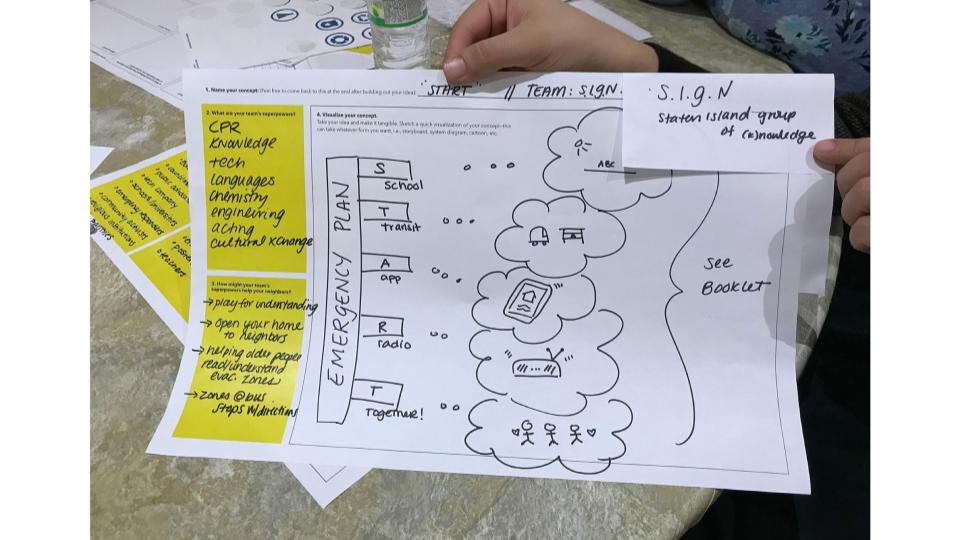 1. Name your concept: (feel free to come back to this at the end after building out your idea) "START" // TEAM: S.I.G.N.
S.I.g.N
Staten Island group
of (k)nowledge
2. What are your team's superpowers?
CPR
Knowledge
tech
languages
chemistry
engineering
acting
cultural xchange
3. How might your team's
superpowers help your neighbors?
→ play for understanding
→ Open your home
to neighbors
→ helping older people
read/understand
evac. zones
→ zones @bus
stops w/directions
4. Visualize your concept.
Take your idea and make it tangible. Sketch a quick visualization of your concept–this
can take whatever form you want, i.e., storyboard, system diagram, cartoon, etc.
EMERGENCY PLAN
S
School
T
transit
A
app
R
radio
T
Together!
ABC
See
Booklet
teachers